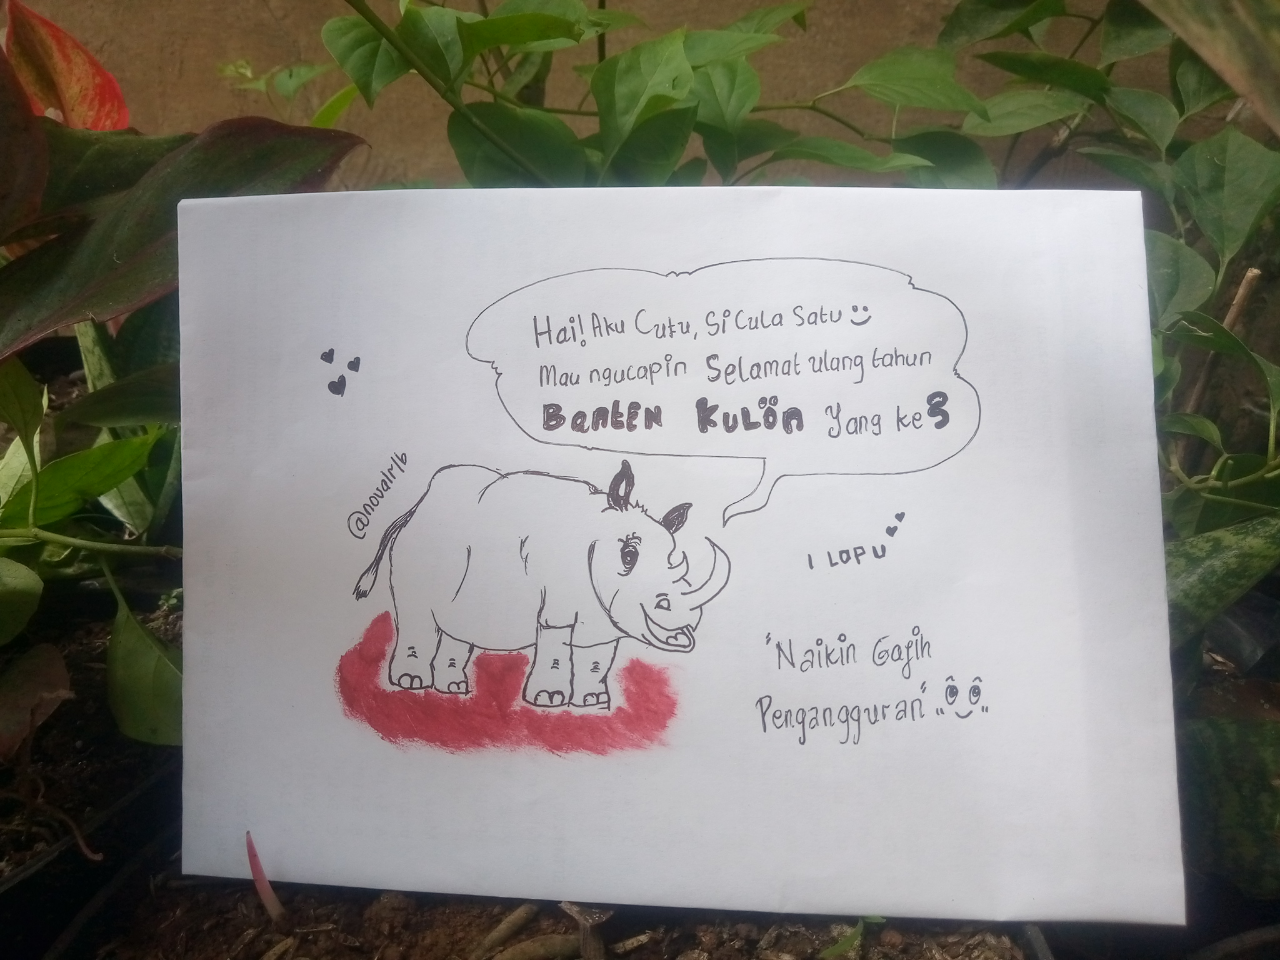 Hai! Aku Cutu, Si Cula Satu
Mau ngucapin Selamat ulang tahun
BANTEN KULÖN Yang ke 3
@novalrlb
I LOPU
"Naikin Gajih
Pengangguran"